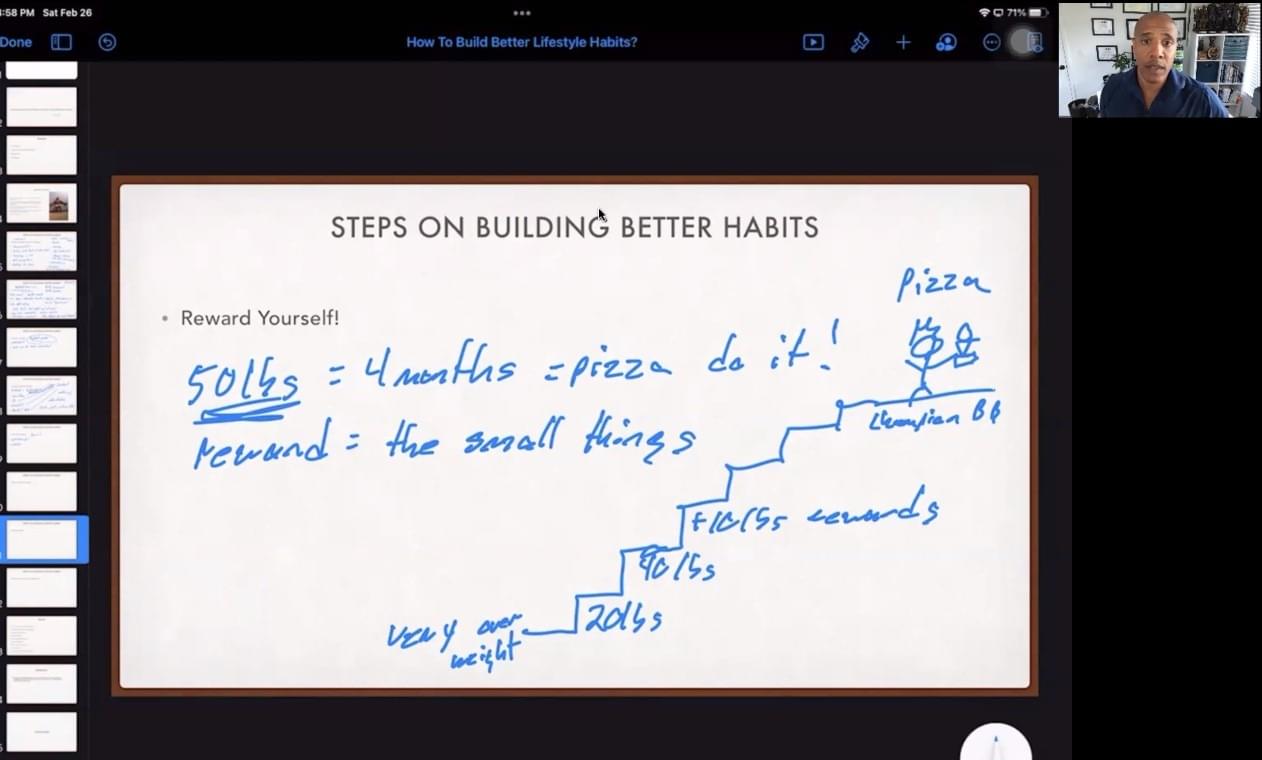 :58 PM Sat Feb 26
71%
Done
How To Build Better Lifestyle Habits?
STEPS ON BUILDING BETTER HABITS
• Reward Yourself!
50lbs = 4 months = pizza do it!
reward = the small things
Pizza
Champion BB
+10lbs rewards
40lbs
20lbs
very over
weight